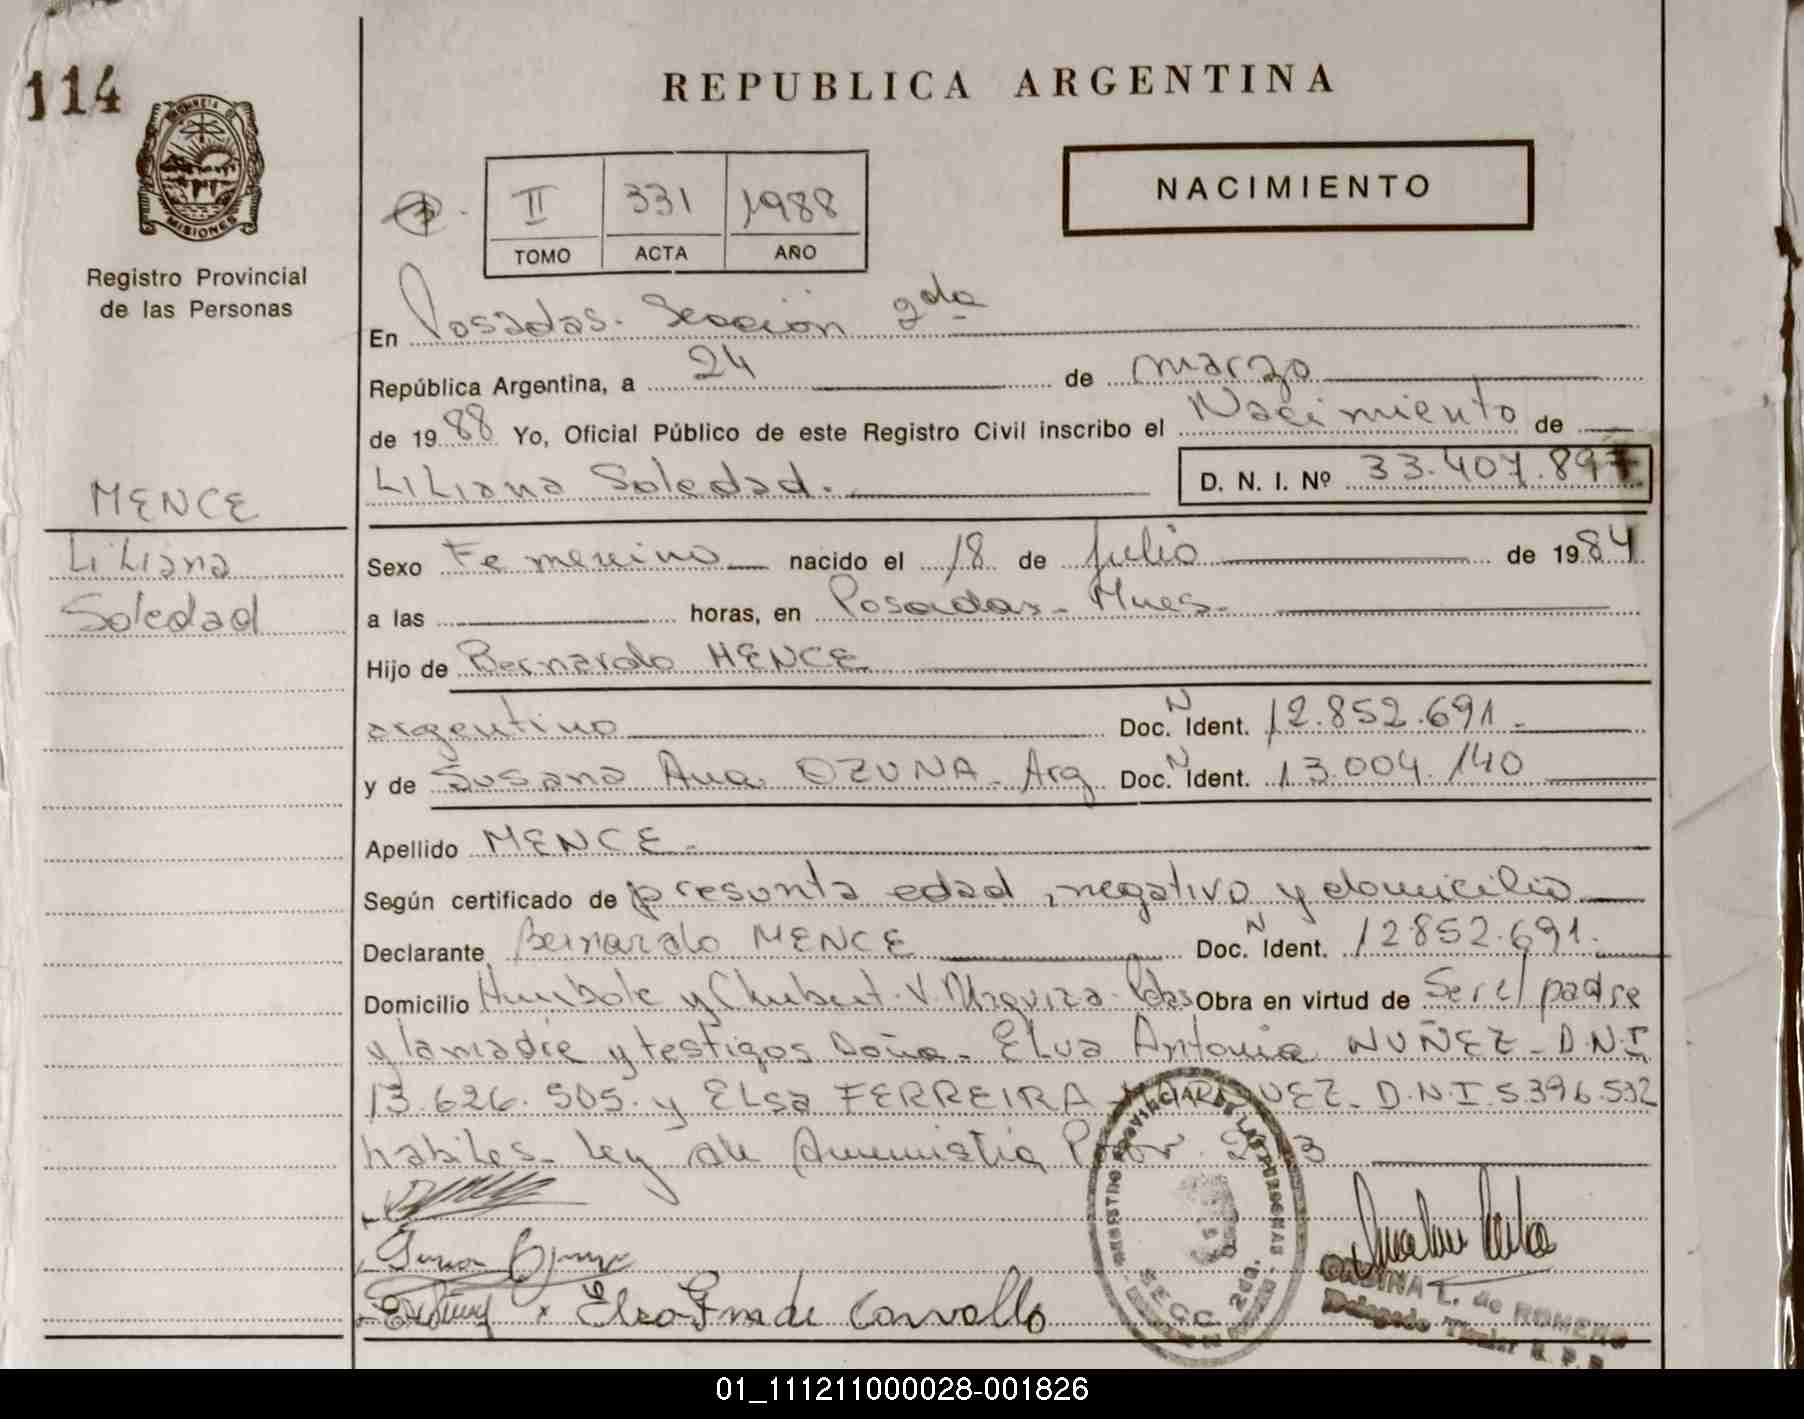 114
REPUBLICA ARGENTINA
NACIMIENTO
II 331 1988
TOMO ACTA AÑO
MISIONES
Registro Provincial
de las Personas
En Posadas. Sección 2da
República Argentina, a 24 de marzo
de 1988 Yo, Oficial Público de este Registro Civil inscribo el Nacimiento de
LiLiana Soledad. D. N. I. Nº 33.407.897
MENCE
LiLiana
Soledad
Sexo Femenino nacido el 18 de Julio de 1984
a las horas, en Posadas - Mnes.
Hijo de Bernardo MENCE
argentino Doc. N Ident. 12.852.691.
y de Susana Ana OZUNA - Arg Doc. N Ident. 13.004.140
Apellido MENCE.
Según certificado de presunta edad, negativo y domicilio
Declarante Bernardo MENCE Doc. N Ident. 12.852.691.
Domicilio y Chubut. V. Pdas Obra en virtud de Ser el padre
y la madre y testigos Doña. Elva Antonia NUÑEZ - D.N.I
13.626.505. y ELsa FERREIRA D.N.I 5.396.532
habiles. Ley de Amnistia
SECC. 2da.
Elsa F. de Carvallo
L. de ROMERO
Delegado Titular R. P. P.
01_111211000028-001826